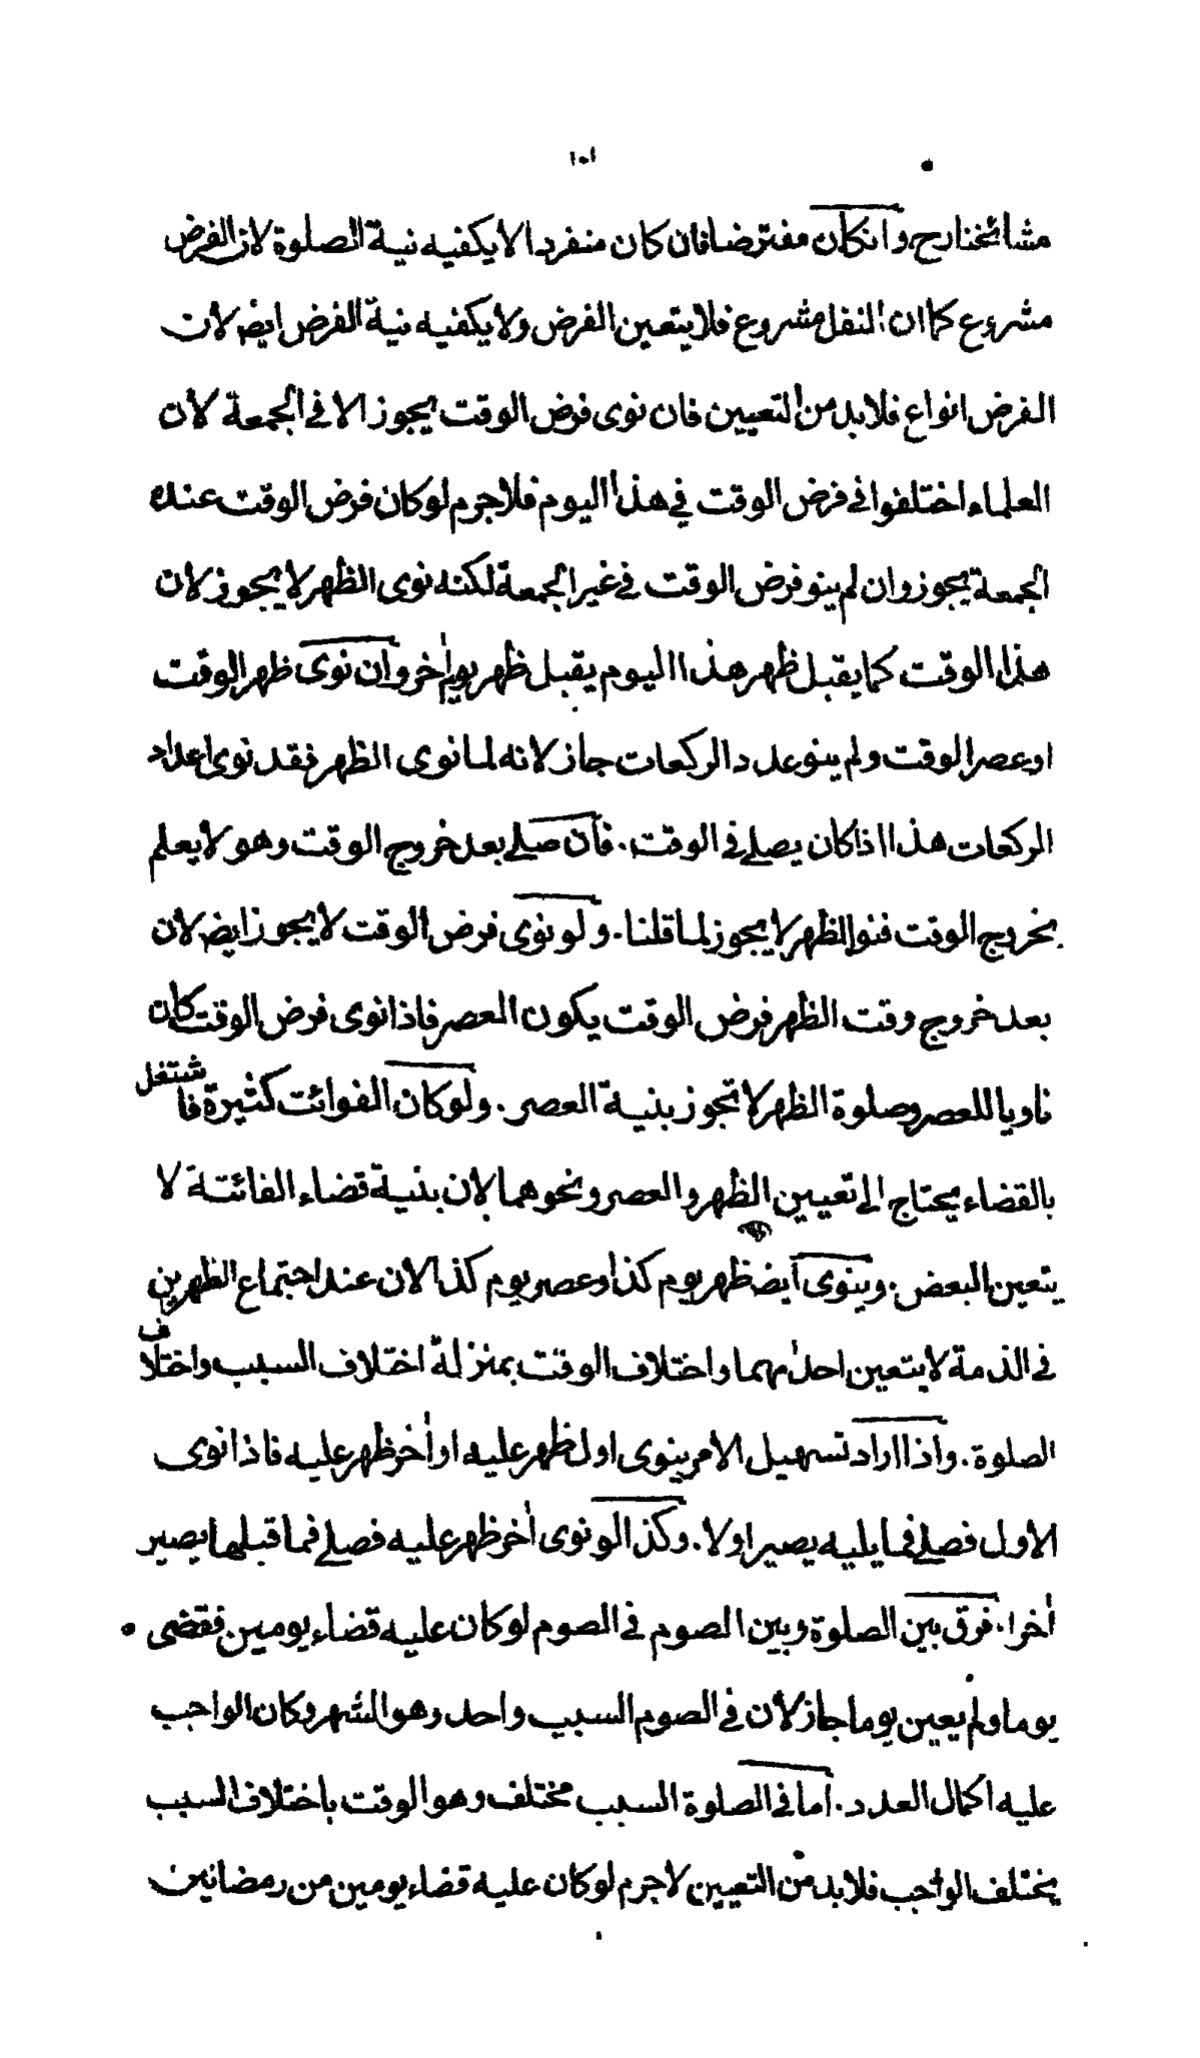 ١٠١
مشائخنا رح وانكان مفترضا فان كان منفردا لا يكفيه نية الصلوة لان الفرض
مشروع كما ان النفل مشروع فلا يتعين الفرض ولا يكفيه نية الفرض ايضا لان
الفرض انواع فلا بد من التعيين فان نوى فرض الوقت يجوز الا في الجمعة لان
العلماء اختلفوا في فرض الوقت في هذا اليوم فلا جرم لو كان فرض الوقت عنده
الجمعة يجوز وان لم ينو فرض الوقت في غير الجمعة لكنه نوى الظهر لا يجوز لان
هذا الوقت كما يقبل ظهر هذا اليوم يقبل ظهر يوم اخر وان نوى ظهر الوقت
او عصر الوقت ولم ينو عدد الركعات جاز لانه لما نوى الظهر فقد نوى اعداد
الركعات هذا اذا كان يصلے في الوقت. فان صلے بعد خروج الوقت وهو لا يعلم
بخروج الوقت فنوا الظهر لا يجوز لما قلنا. ولو نوى فرض الوقت لا يجوز ايضا لان
بعد خروج وقت الظهر فرض الوقت يكون العصر فاذا نوى فرض الوقت كان
ناويا للعصر وصلوة الظهر لا تجوز بنية العصر. ولو كان الفوائت كثيرة فاشتغل
بالقضاء يحتاج الى تعيين الظهر والعصر ونحوهما لان بنية قضاء الفائتة لا
يتعين البعض. وينوى ايضا ظهر يوم كذا وعصر يوم كذا لان عند اجتماع الظهرين
في الذمة لا يتعين احدهما واختلاف الوقت بمنزلة اختلاف السبب واختلاف
الصلوة. واذا اراد تسهيل الامر ينوى اول ظهر عليه او اٰخر ظهر عليه فاذا نوى
الاول فصلے فما يليه يصير اولا. وكذا لو نوى اٰخر ظهر عليه فصلے فما قبلها يصير
اٰخرا. فرق بين الصلوة وبين الصوم في الصوم لو كان عليه قضاء يومين فقضى
يوما ولم يعين يوما جاز لان في الصوم السبب واحد وهو الشهر وكان الواجب
عليه اكمال العدد. اما في الصلوة السبب مختلف وهو الوقت باختلاف السبب
يختلف الواجب فلا بد من التعيين لا جرم لو كان عليه قضاء يومين من رمضانين